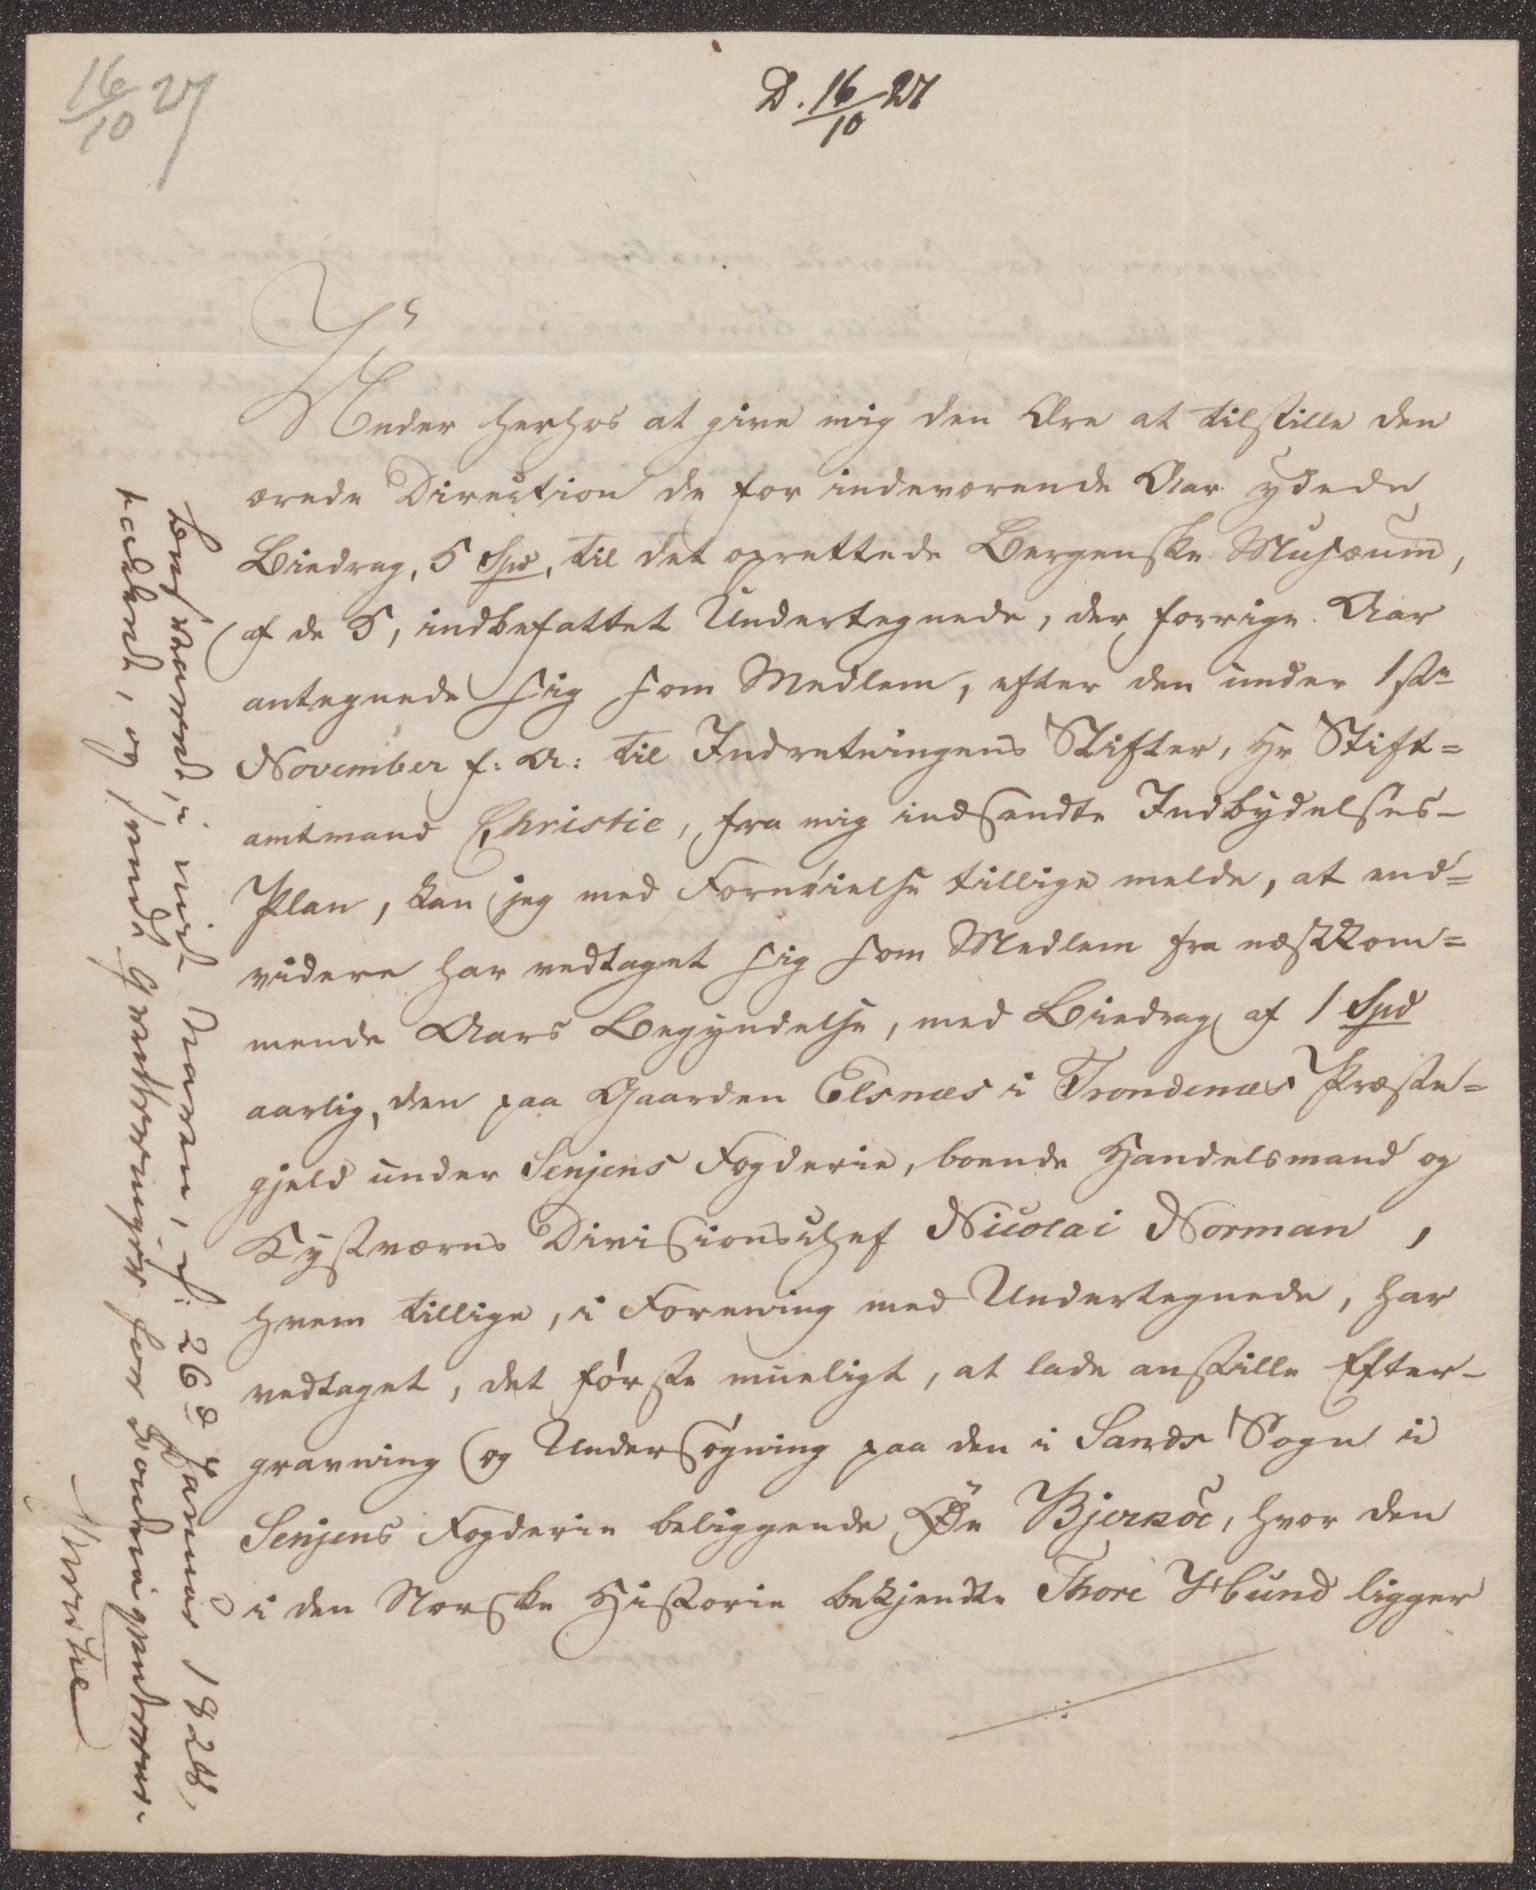 16/10 27
D. 16/10 27
Under herhos at give mig den Ære at tilstille den
ærede Direction de for indeværende Aar ydede
Biedrag, 5 Spd, til det oprettede Bergenske Musæum,
af de 5, indbefattet Undertegnede, der forrige Aar
antegnede sig som Medlem, efter den under 1ste
November f: A: til Indretningens Stifter, Hr Stift=
amtmand Christie, fra mig indsendte Indbydelses-
Plan, kan jeg med Fornøielse tillige melde, at end=
videre har vedtaget sig som Medlem fra næstkom=
mende Aars Begyndelse, med Biedrag af 1 Spd
aarlig, den paa Gaarden Elsnæs i Trondenæs Præste=
gjeld under Senjens Fogderie, boende Handelsmand og
Kystværns Divisionschef Nicolai Norman,
hvem tillige, i Forening med Undertegnede, har
vedtaget, det første mueligt, at lade anstille Efter-
gravning og Undersøgning paa den i Sands Sogn i
Senjens Fogderie beliggende Øe Bjerkøe, hvor den
i den Norske Historie bekjendte Thore Hund ligger
Besvaret, i mit Navn, d: 26d Januar 1828,
takket, og sendt Qvitteringer for Contingenterne.
Christie